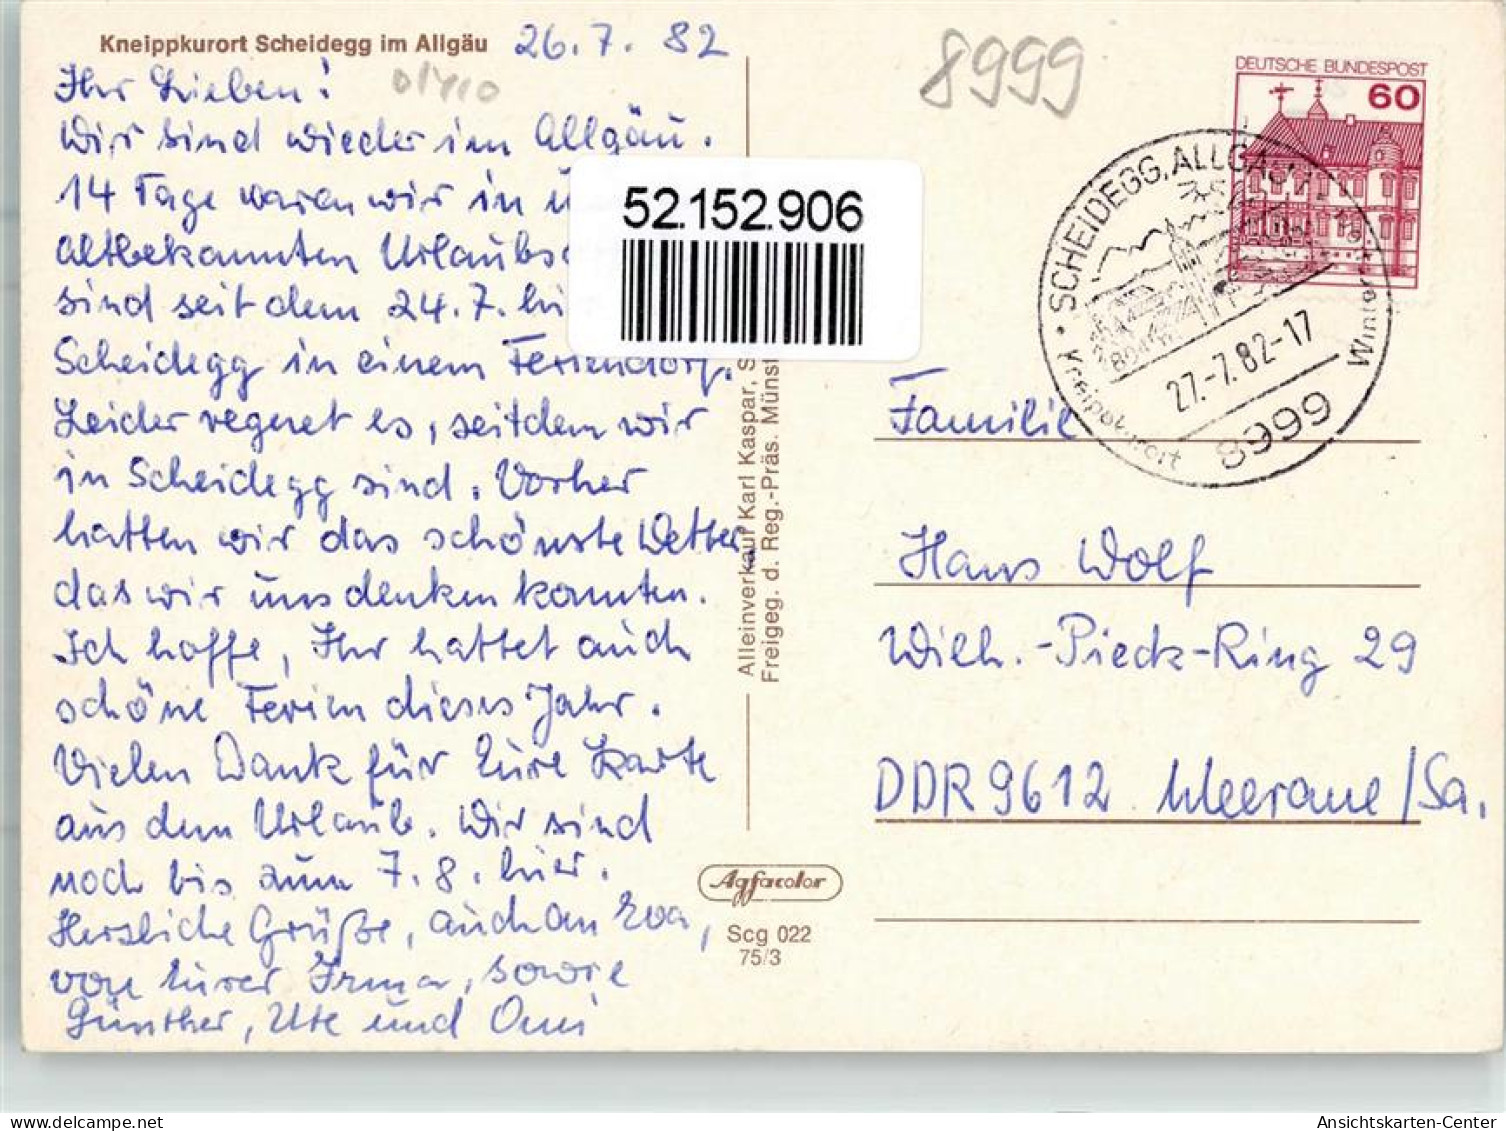 Kneippkurort Scheidegg im Allgäu
26.7.82
Ihr Lieben!
Wir sind wieder im Allgäu.
14 Tage waren wir in
altbekannten
sind seit dem 24.7.
Scheidegg in einem Feriendorf.
Leider regnet es, seitdem wir
in Scheidegg sind. Vorher
hatten wir das schönste Wetter,
das wir uns denken konnten.
Ich hoffe, Ihr hattet auch
schöne Ferien dieses Jahr.
Vielen Dank für Eure Karte
aus dem Urlaub. Wir sind
noch bis zum 7.8. hier.
Herzliche Grüße, auch an Eva,
von Eurer Irma, sowie
Günther, Ute und Omi
52.152.906
Alleinverkauf Karl Kaspar, S
Freigeg. d. Reg.-Präs. Münst
Agfacolor
Scg 022
75/3
8999
DEUTSCHE BUNDESPOST
60
SCHEIDEGG, ALLGÄU
Kneippkurort
27.-7.82-17
8999
Familie
Hans Wolf
Wilh.-Pieck-Ring 29
DDR 9612 Meerane/Sa.
Ansichtskarten-Center